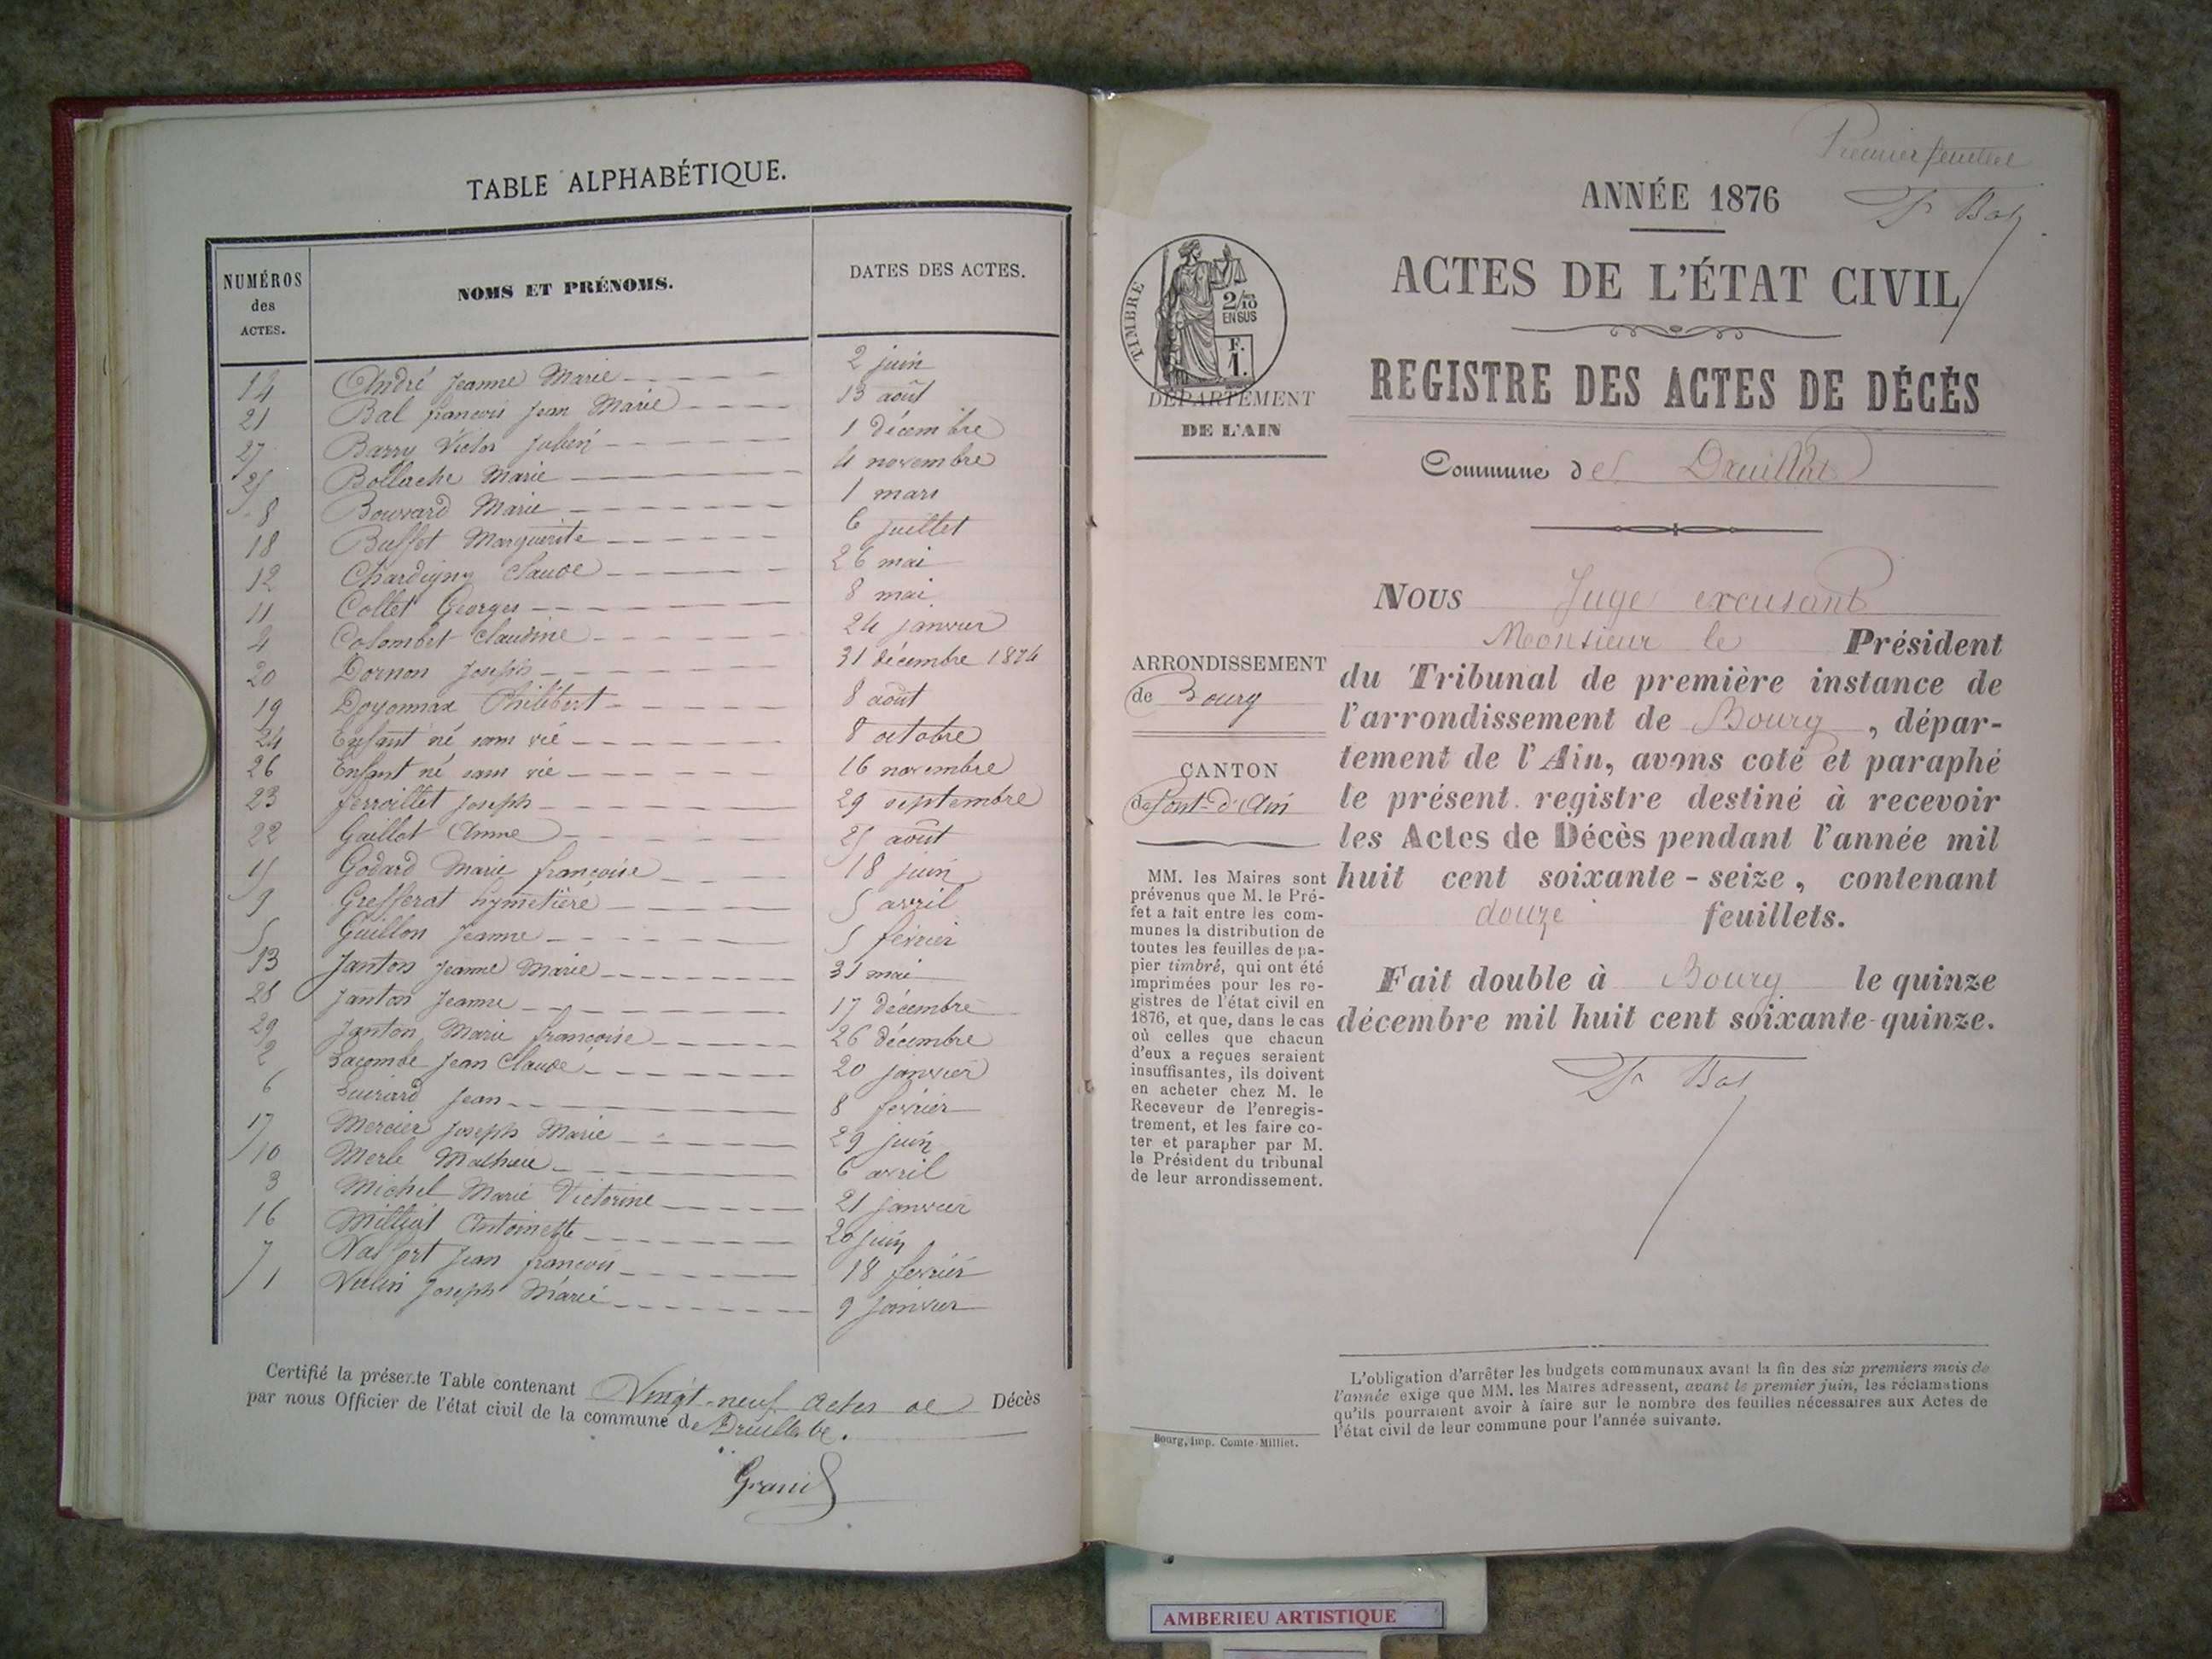 TABLE ALPHABÉTIQUE.
NUMÉROS des ACTES. NOMS ET PRÉNOMS. DATES DES ACTES.
14 André Jeanne Marie 2 juin
21 Bal françois Jean Marie 13 août
27 Barry Victor Julien 1 décembre
25 Bollache Marie 4 novembre
8 Bouvard Marie 1 mars
18 Buffet Marguerite 6 juillet
12 Chardigny Claude 26 mai
11 Collet Georges 8 mai
4 Colombet Claudine 24 janvier
20 Dornon Joseph 31 décembre 1874
19 Doyonnax Philibert 8 août
24 Enfant né sans vie 8 octobre
26 Enfant né sans vie 16 novembre
23 ferroillet Joseph 29 septembre
22 Gaillot Anne 25 août
15 Godard Marie françoise 18 juin
9 Grefferat hymetière 5 avril
5 Guillon Jeanne 5 février
13 Janton Jeanne Marie 31 mai
28 Janton Jeanne 17 décembre
29 Janton Marie françoise 26 décembre
2 Lacombe Jean Claude 20 janvier
6 Luirard Jean 8 fevrier
17 Mercier Joseph Marie 29 juin
10 Merle Mathieu 6 avril
3 Michel Marie Victorine 21 janvier
16 Milliat Antoinette 20 juin
7 Jean françois 18 fevrier
1 Vulin Joseph Marie 9 janvier
Certifié la présente Table contenant Vingt-neuf actes de Décès
par nous Officier de l'état civil de la commune de Druillat.
Grand
Premier feuillet
ANNÉE 1876
Bal
ACTES DE L'ÉTAT CIVIL
TIMBRE
2/10 EN SUS
F. 1.
DÉPARTEMENT
DE L'AIN
REGISTRE DES ACTES DE DÉCÈS
Commune de Druillat
Nous Juge excusant
Monsieur le Président
du Tribunal de première instance de
l'arrondissement de Bourg, dépar-
tement de l'Ain, avons coté et paraphé
le présent registre destiné à recevoir
les Actes de Décès pendant l'année mil
huit cent soixante-seize, contenant
douze feuillets.
Fait double à Bourg le quinze
décembre mil huit cent soixante-quinze.
Bal
ARRONDISSEMENT
de Bourg
CANTON
de Pont-d'Ain
MM. les Maires sont
prévenus que M. le Pré-
fet a fait entre les com-
munes la distribution de
toutes les feuilles de pa-
pier timbré, qui ont été
imprimées pour les re-
gistres de l'état civil en
1876, et que, dans le cas
où celles que chacun
d'eux a reçues seraient
insuffisantes, ils doivent
en acheter chez M. le
Receveur de l'enregis-
trement, et les faire co-
ter et parapher par M.
le Président du tribunal
de leur arrondissement.
Bourg, imp. Comte-Milliet.
L'obligation d'arrêter les budgets communaux avant la fin des six premiers mois de
l'année exige que MM. les Maires adressent, avant le premier juin, les réclamations
qu'ils pourraient avoir à faire sur le nombre des feuilles nécessaires aux Actes de
l'état civil de leur commune pour l'année suivante.
AMBERIEU ARTISTIQUE